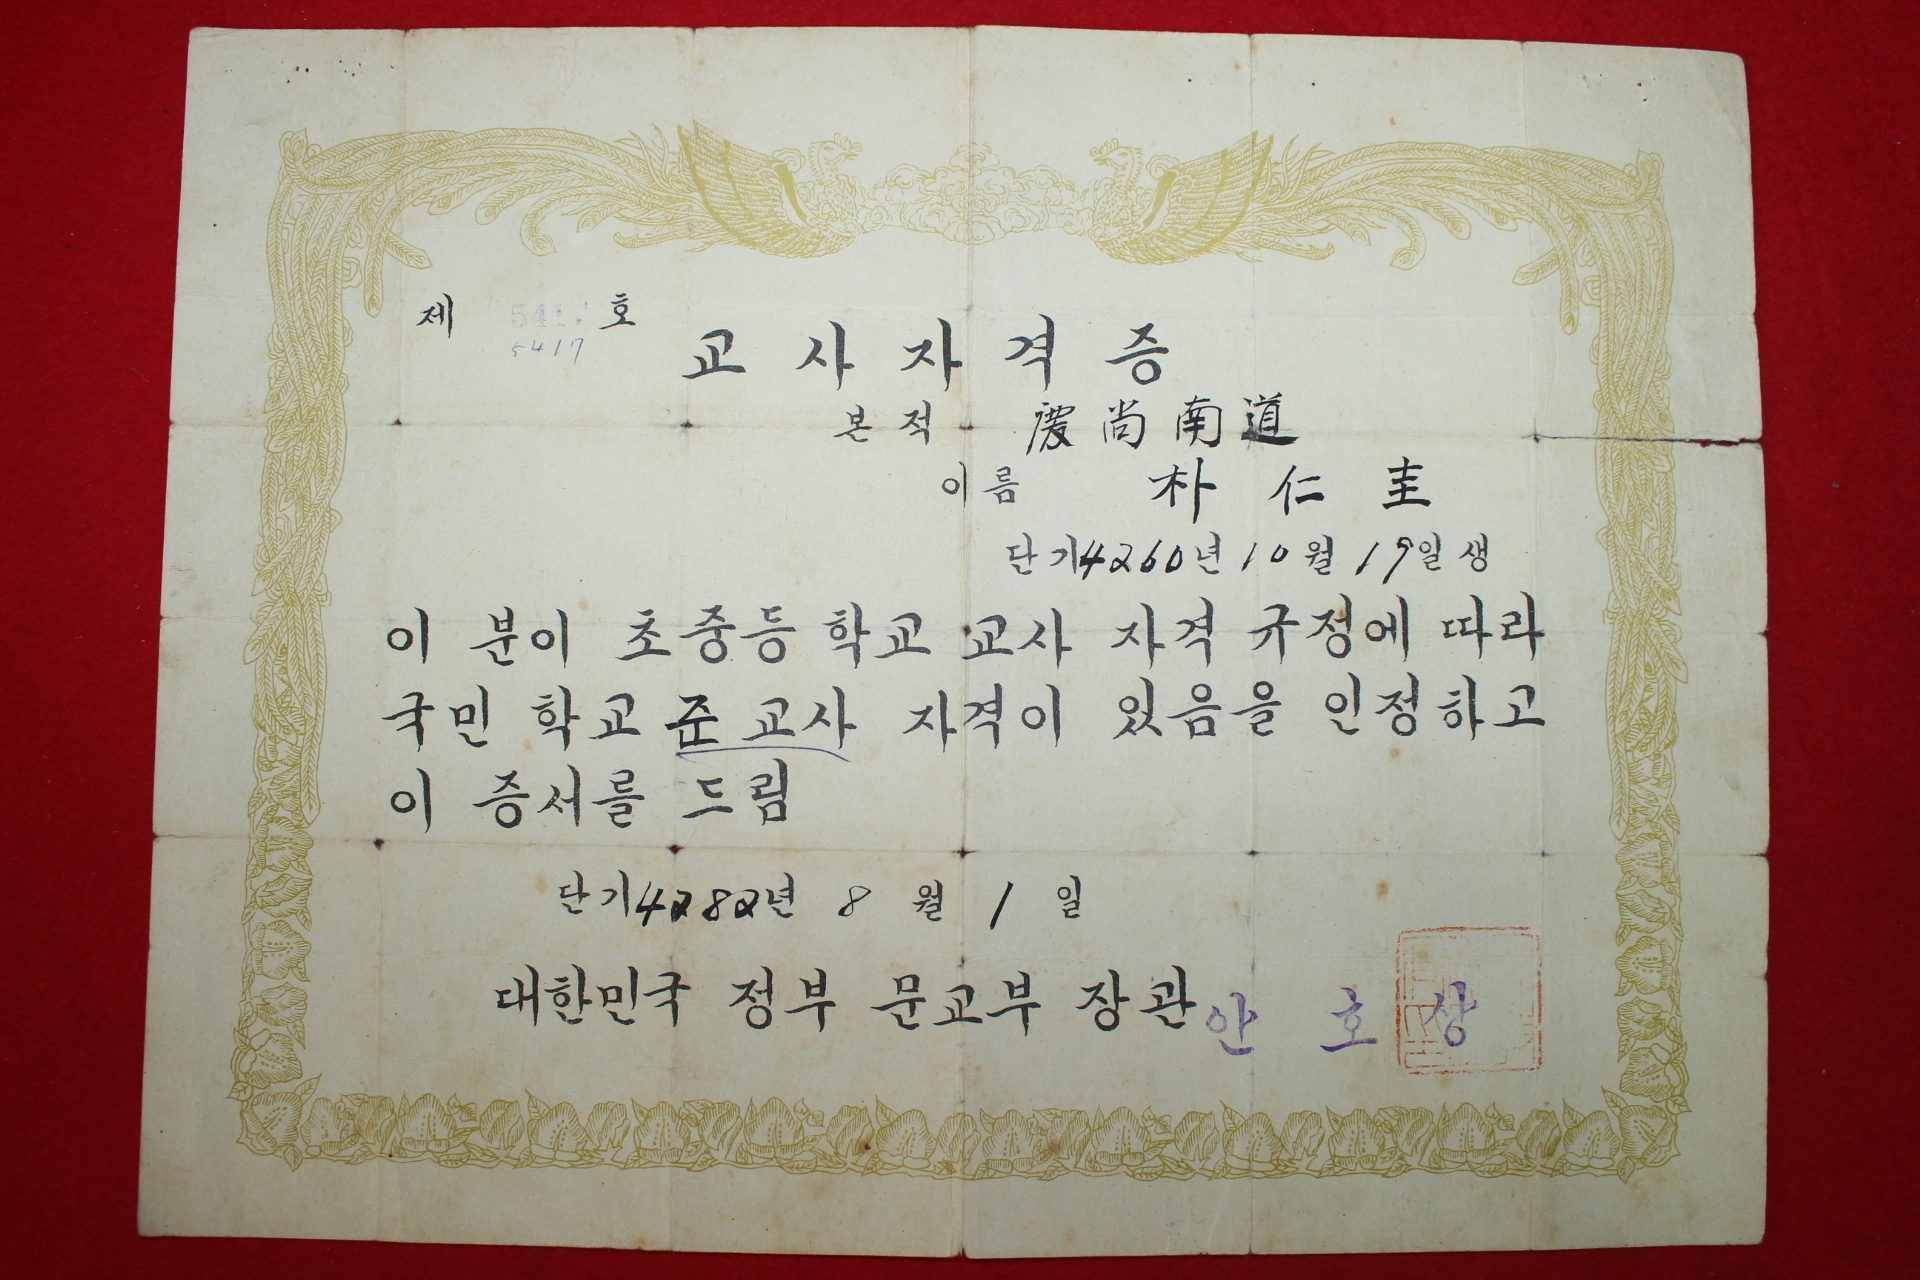 제 5417 호
5417
교사자격증
본적 慶尚南道
이름 朴仁圭
단기4260년 10월 19일생
이 분이 초중등 학교 교사 자격 규정에 따라
국민 학교 준교사 자격이 있음을 인정하고
이 증서를 드림
단기4282년 8월 1일
대한민국 정부 문교부 장관 안호상